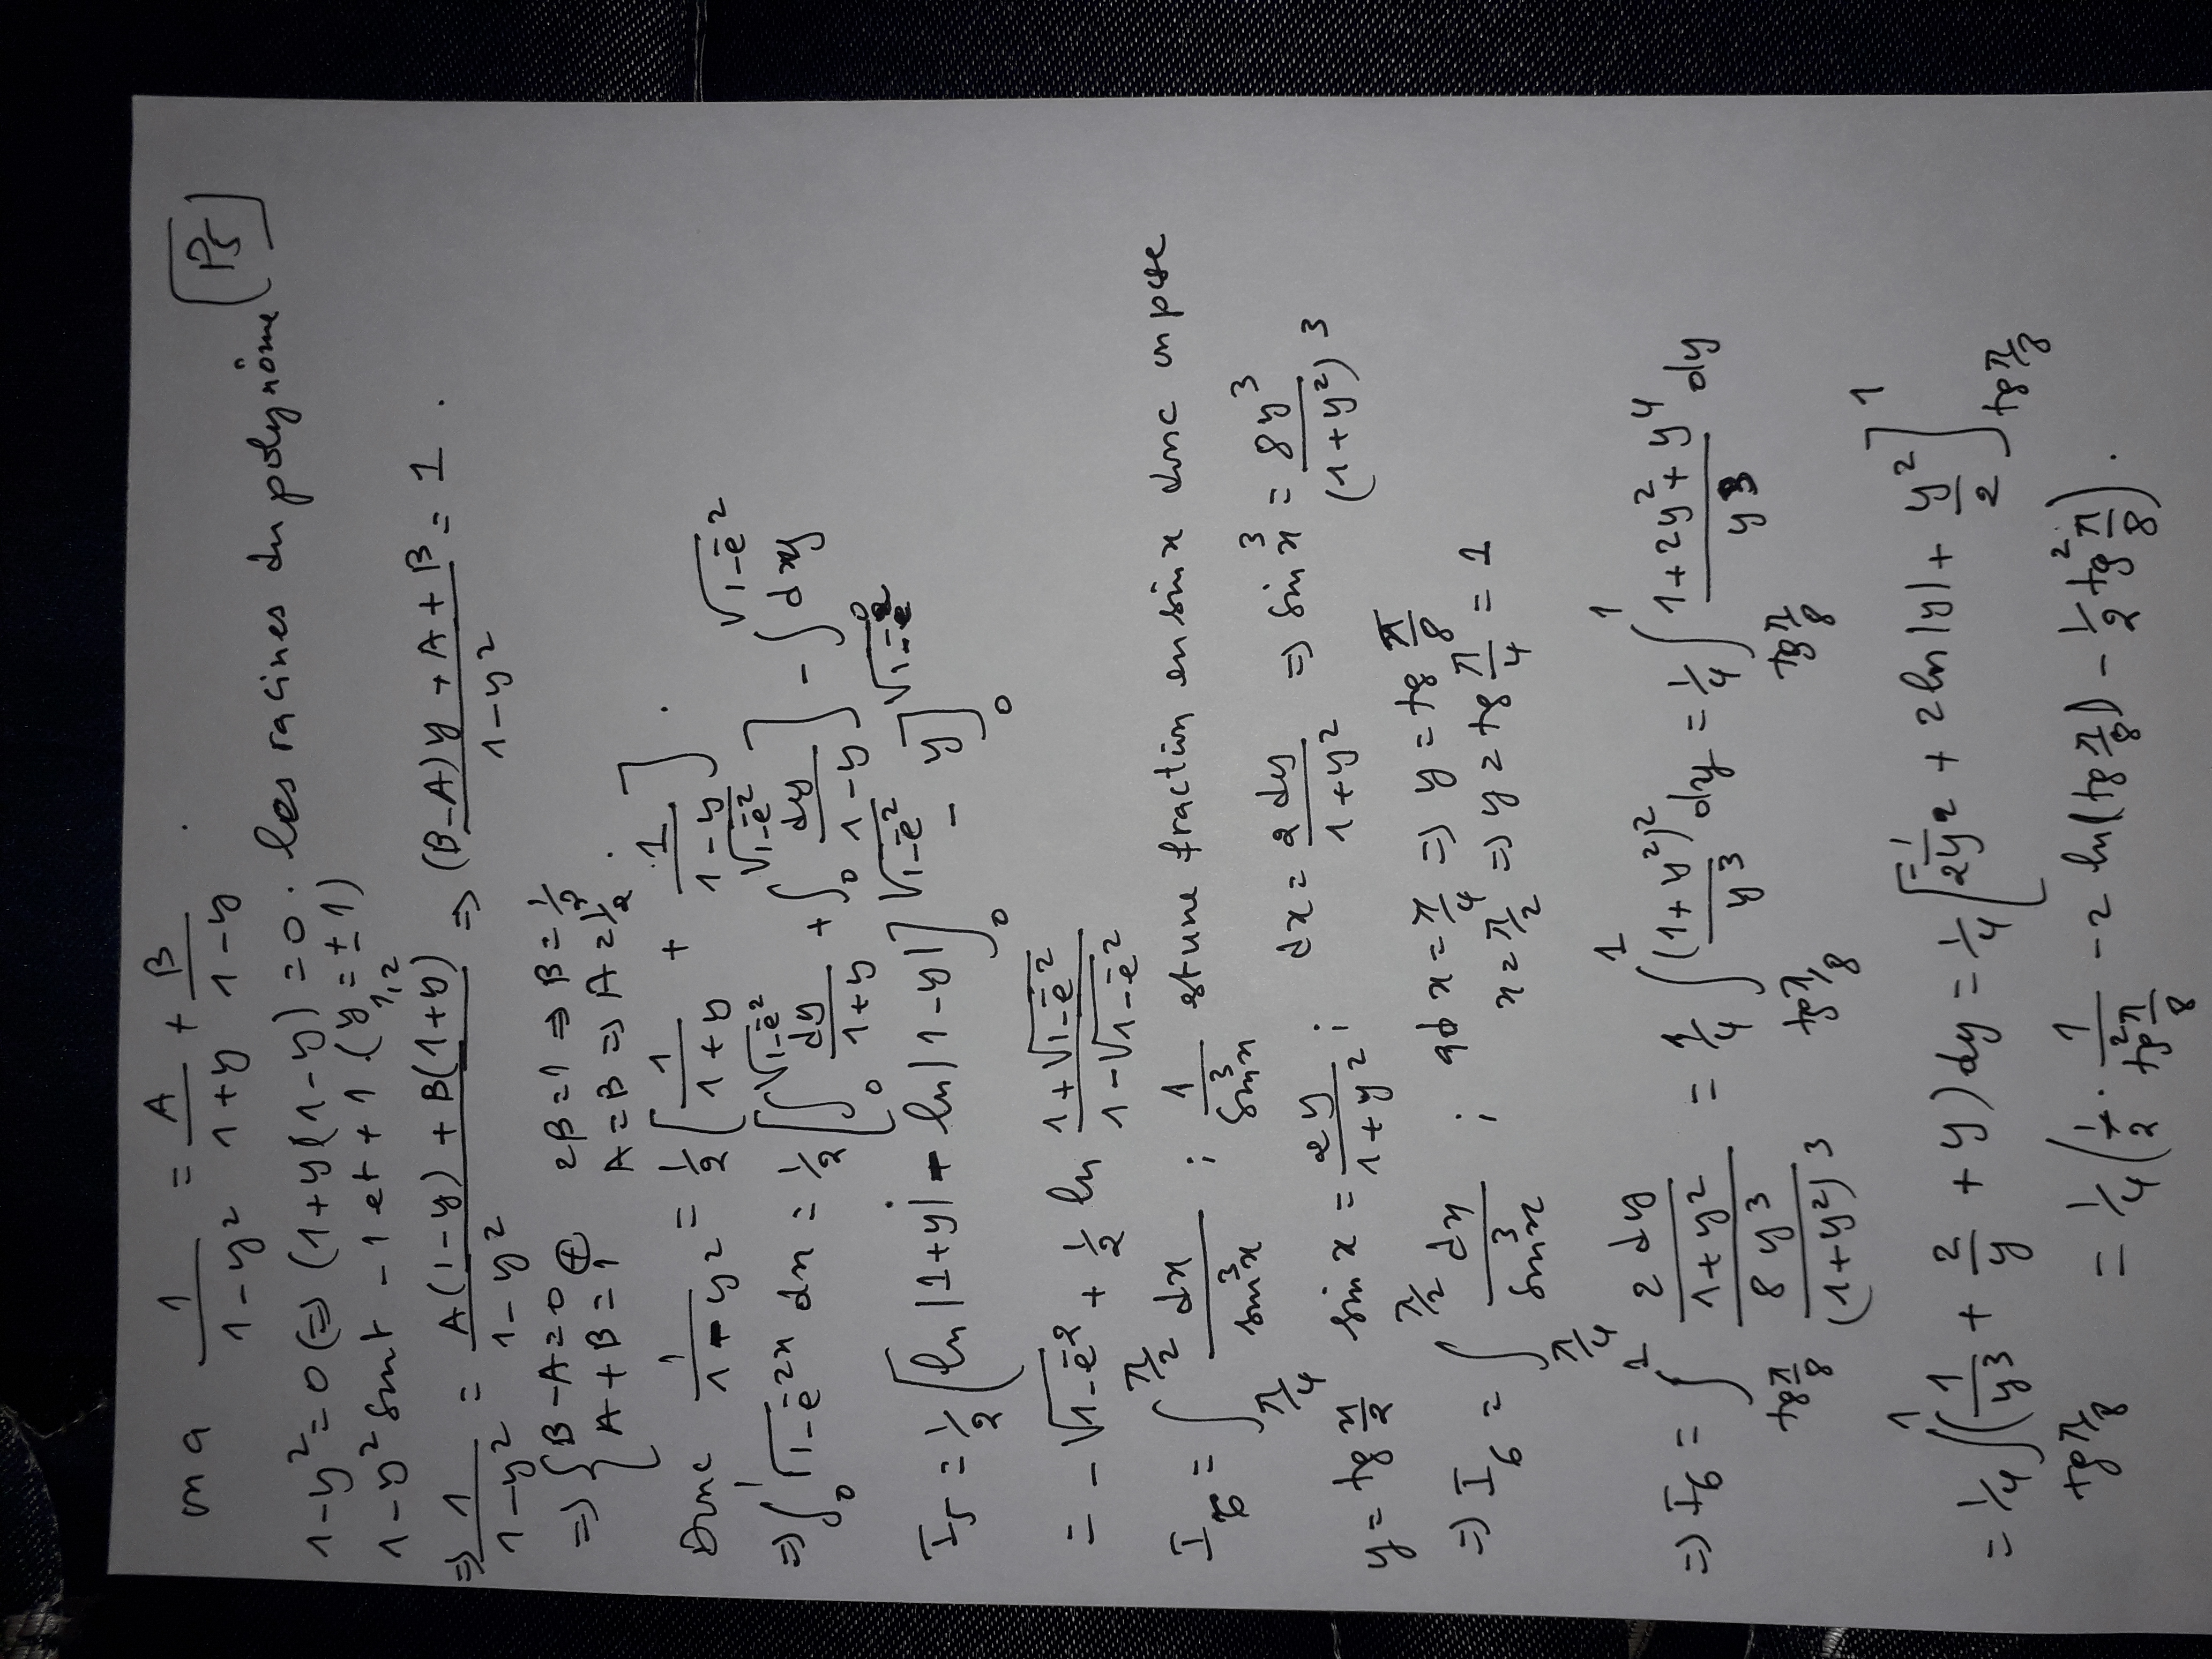 P5
on a 1/(1-y²) = A/(1+y) + B/(1-y) .
1-y² = 0 ⇔ (1+y)(1-y) = 0 . les racines du polynôme
1-y² sont -1 et +1 . (y₁,₂ = ±1)
⇒ 1/(1-y²) = (A(1-y) + B(1+y))/(1-y²) ⇒ ((B-A)y + A+B)/(1-y²) = 1 .
⇒ { B-A=0 ⊕ 2B=1 ⇒ B=1/2
{ A+B=1 A=B ⇒ A=1/2 .
Donc 1/(1-y²) = 1/2 [ 1/(1+y) + 1/(1-y) ] .
⇒ ∫₀¹ √(1-e⁻²x) dx = 1/2 [ ∫₀^√(1-e⁻²) dy/(1+y) + ∫₀^√(1-e⁻²) dy/(1-y) ] - ∫₀^√(1-e⁻²) dy
I₅ = 1/2 [ ln|1+y| - ln|1-y| ]₀^√(1-e⁻²) - y]₀^√(1-e⁻²)
= -√(1-e⁻²) + 1/2 ln (1+√(1-e⁻²))/(1-√(1-e⁻²))
I₆ = ∫_{π/4}^{π/2} dx/sin³x ; 1/sin³x est une fraction en sin x donc on pose
y = tg x/2 sin x = 2y/(1+y²) ; dx = 2dy/(1+y²) ⇒ sin³x = 8y³/(1+y²)³
⇒ I₆ = ∫_{π/4}^{π/2} dx/sin³x ; qd x = π/4 ⇒ y = tg π/8
x = π/2 ⇒ y = tg π/4 = 1
⇒ I₆ = ∫_{tg π/8}^1 (2dy/(1+y²))/(8y³/(1+y²)³) = 1/4 ∫_{tg π/8}^1 (1+y²)²/y³ dy = 1/4 ∫_{tg π/8}^1 (1+2y²+y⁴)/y³ dy
= 1/4 ∫_{tg π/8}^1 (1/y³ + 2/y + y) dy = 1/4 [ -1/2y² + 2ln|y| + y²/2 ]_{tg π/8}^1
= 1/4 ( 1/2 · 1/tg²π/8 - 2 ln(tg π/8) - 1/2 tg²π/8 ) .